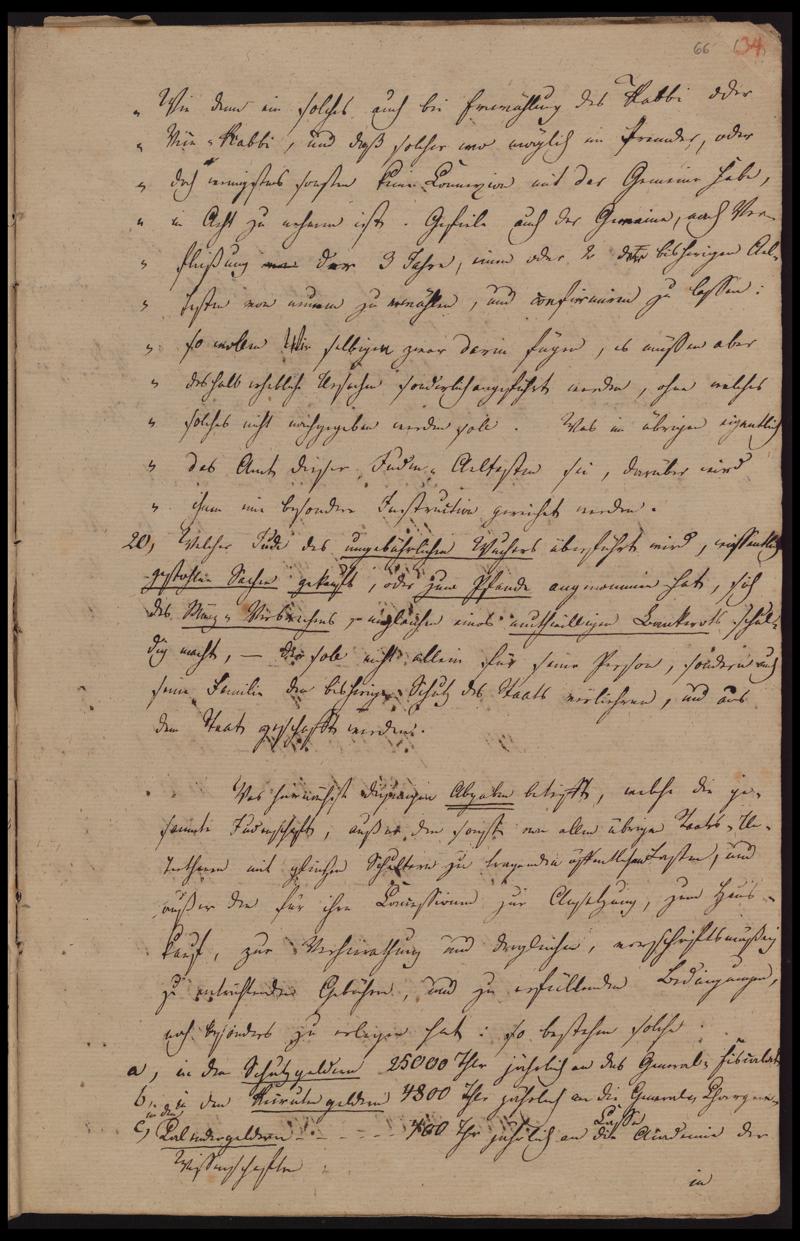 66 (34)
„ Wie denn ein solches auch bei Erwählung des Rabbi oder
„ Vice-Rabbi, und daß solcher wo möglich ein fremder, oder
„ doch wenigstens sonsten keine Connexion mit der Gemeine habe,
„ in Acht zu nehmen ist. Gefiele auch der Gemeine, nach Ver-
„ fließung der 3 Jahre, einen oder 2 der bisherigen Ael-
„ testen von neuem zu erwählen, und confirmiren zu lassen:
„ so wollen Wir selbigen zwar darin fügen, es müssen aber
„ deshalb erhebliche Ursachen sonderlich angeführt werden, ohne welches
„ solches nicht nachgegeben werden soll. Was im übrigen eigentlich
„ das Amt dieser Juden-Aeltesten sei, darüber wird
„ ihnen eine besondere Instruction gereichet werden.
20, Welcher Jude des ungebührlichen Wuchers überführt wird, wissentlich
gestohlne Sachen gekauft, oder zum Pfande angenommen hat, sich
des Münz-Verbrechens, ingleichen eines muthwilligen Bankerots schul-
dig macht, — der soll nicht allein für seine Person, sondern auch
seine Familie den bisherigen Schutz des Staats verliehren, und aus
dem Staat geschafft werden.
Was hiernächst diejenigen Abgaben betrifft, welche die ge-
sammte Judenschaft, außer den sonst von allen übrigen Staats-Un-
terthanen mit gleichen Schultern zu tragenden öffentlichen Lasten, und
außer den für ihre Concessionen zur Ansetzung, zum Haus-
kauf, zur Verheirathung und dergleichen, vorschriftsmäßig
zu entrichtenden Gebühren, und zu erfüllenden Bedingungen,
noch besonders zu erlegen hat: so bestehen solche
a, in den Schutzgeldern 25000 Thlr jährlich an das General-Fiscalat
b, in den Recrutengeldern 4800 Thlr jährlich an die General-Chargen-
Casse
c, in den Calendergeldern - - - - - 400 Thlr jährlich an die Academie der
Wissenschaften
in